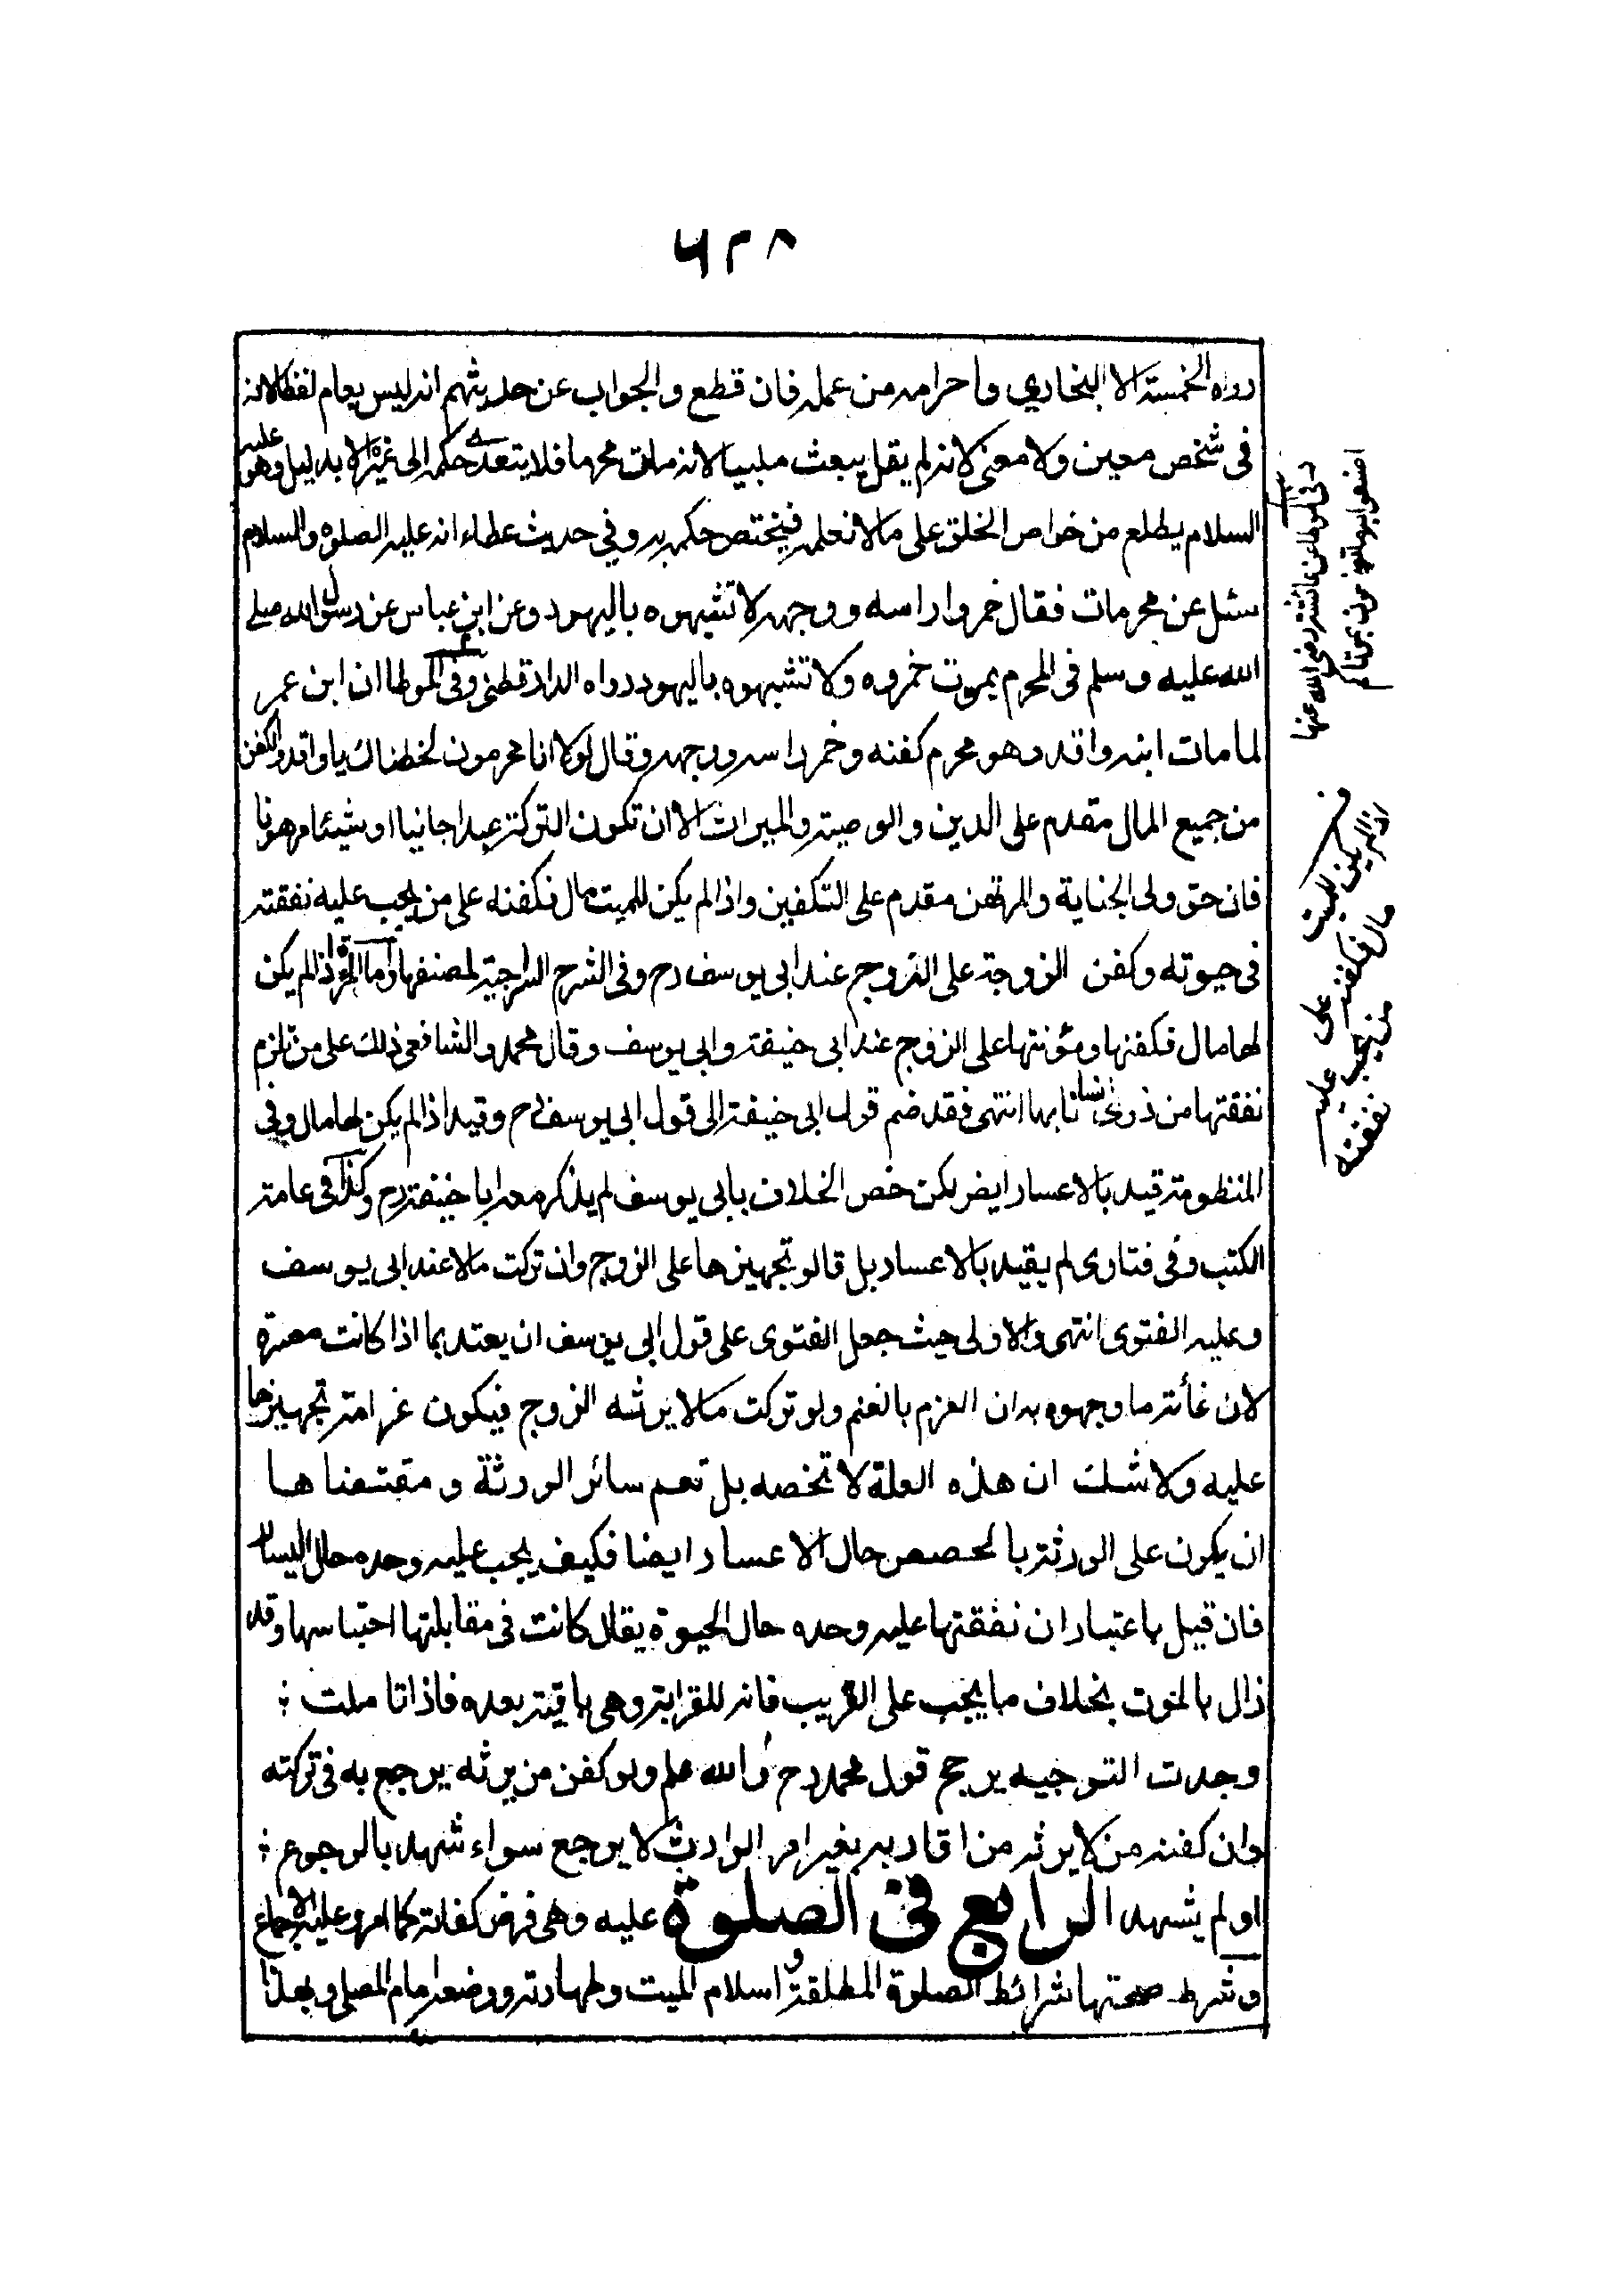 ٦٢٨
رواه الخمسة الا البخاري واحرامه من عمله فان قطع والجواب عن حديثهم انه ليس بعام لفظا لانه
في شخص معين ولا معنى لانه لم يقل يبعث ملبيا لانه مات محرما فلا يتعدى حكمه الى غيره الا بدليل وهو عليه
السلام يطلع من خواص الخلق على ما لا نعلمه فيختص حكمه به وفي حديث عطاء انه عليه الصلوة والسلام
سئل عن محرمات فقال خمروا راسه ووجهه لا تشبهوه باليهود وعن ابن عباس عن رسول الله صلى
الله عليه وسلم في المحرم يموت خمروه ولا تشبهوه باليهود رواه الدارقطني وفي الموطا ان ابن عمر
لما مات ابنه واقد وهو محرم كفنه وخمر راسه ووجهه وقال لولا انا محرمون لحطناك يا واقد والكفن
من جميع المال مقدم على الدين والوصية والميراث الا ان تكون التركة عبدا جانيا او شيئا مرهونا
فان حق ولي الجناية والمرتهن مقدم على التكفين واذا لم يكن للميت مال فكفنه على من يجب عليه نفقته
في حيوته وكفن الزوجة على الزوج عند ابي يوسف رح وفي الشرح السراجية لمصنفها واما المرأة اذا لم يكن
لها مال فكفنها ومؤنتها على الزوج عند ابي حنيفة وابي يوسف وقال محمد والشافعي ذلك على من تلزم
نفقتها من ذوي انسابها انتهى فقد ضم قول ابي حنيفة الى قول ابي يوسف رح وقيد اذا لم يكن لها مال وفي
المنظومة قيد بالاعسار ايضر لكن خص الخلاف بابي يوسف لم يذكر معه ابا حنيفة رح وكذا في عامة
الكتب وفي فتاوى لم يقيد بالاعسار بل قالو تجهيزها على الزوج وان تركت مالا عند ابي يوسف
وعليه الفتوى انتهى والاولى حيث جعل الفتوى على قول ابي يوسف ان يعتد بما اذا كانت معسرة
لان غأية ما وجهوه به ان الغرم بالغنم ولو تركت مالا يرثه الزوج فيكون غرامة تجهيزها
عليه ولا شك ان هذه العلة لا تخصه بل تعم سائر الورثة و مقتضاها
ان يكون على الورثة بالحصص حال الاعسار ايضا فكيف يجب عليه وحده حال اليسار
فان قيل باعتبار ان نفقتها عليه وحده حال الحيوة يقال كانت في مقابلتها احتباسها وقد
زال بالموت بخلاف ما يجب على القريب فانه للقرابة وهي باقية بعده فاذا تاملت ؛
وجدت التوجيه يرجح قول محمد رح والله اعلم ولو كفن من يرثه يرجع به في تركته
وان كفنه من لا يرثه من اقاربه بغير امر الوارث لا يرجع سواء شهد بالرجوع ؛
او لم يشهد الرابع في الصلوة عليه وهي فرض كفاية كما امر وعليه الاجماع
وشرط صحتها شرائط الصلوة المطلقة و اسلام الميت وطهارته ووضعه امام المصلي وبهذا
في الموطا عن عائشة رضي الله عنها
اصنعوا به ما
اذا لم يكن للميت
مال فكفنه على
من يجب عليه
نفقته